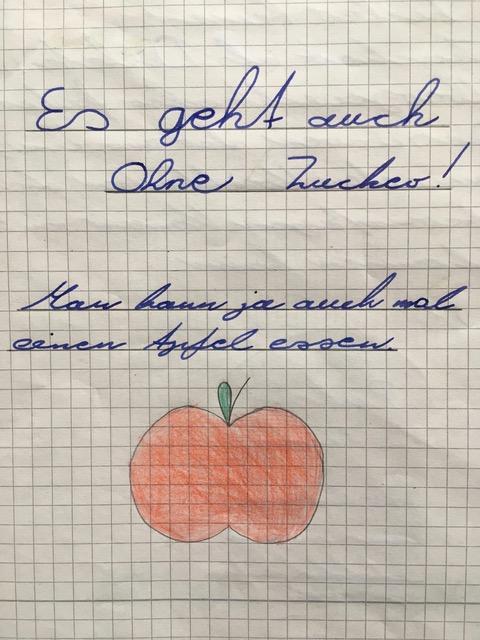 Es geht auch
Ohne Zucker!
Man kann ja auch mal
einen Apfel essen.